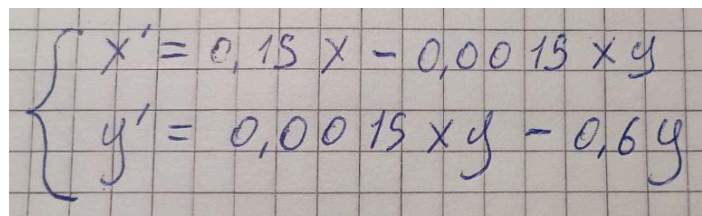 x' = 0,15 x - 0,0015 x y
y' = 0,0015 x y - 0,6 y